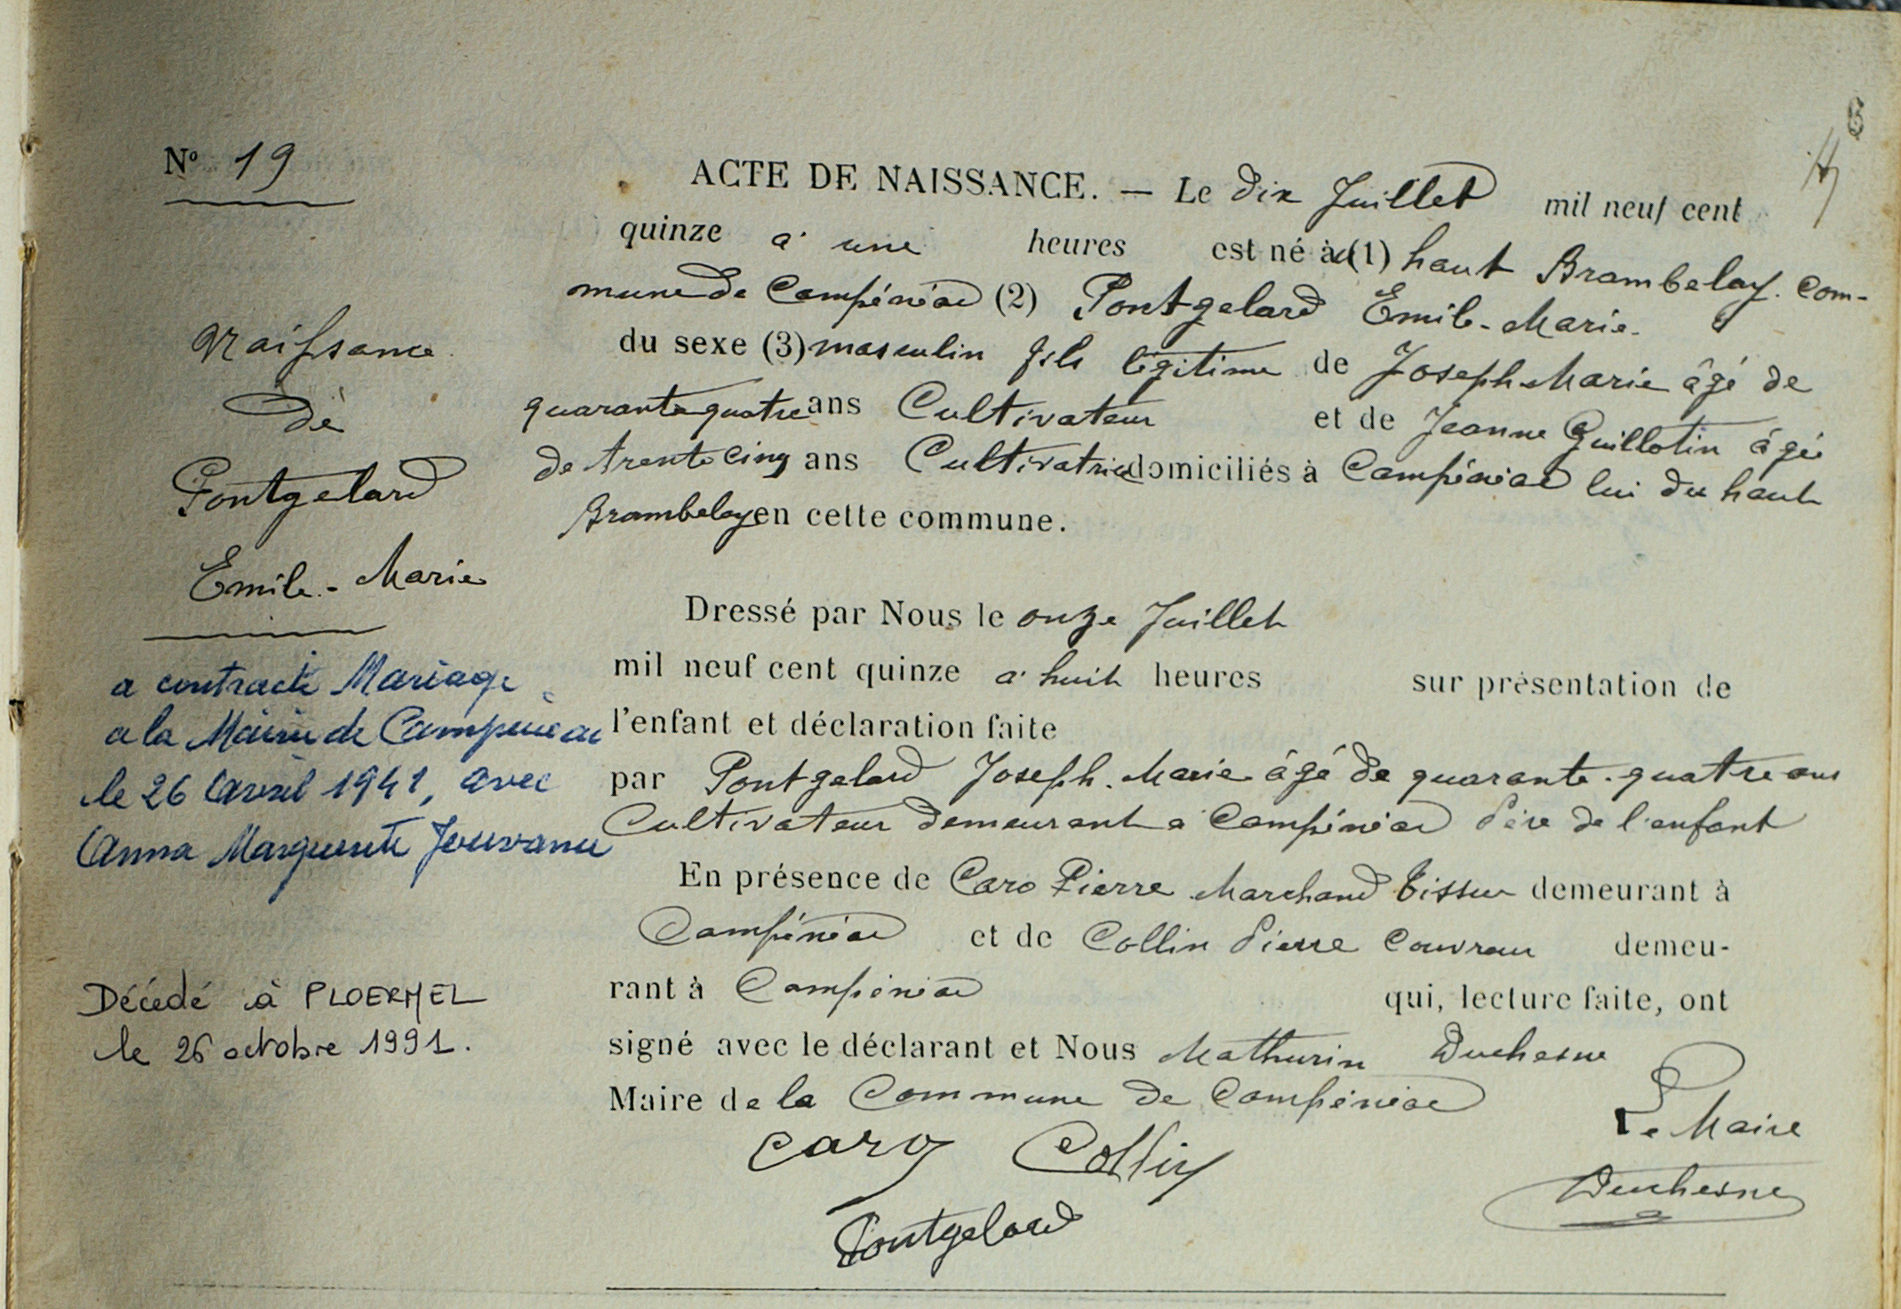 6
N° 19
ACTE DE NAISSANCE. — Le dix Juillet mil neuf cent
quinze à une heures est né au (1) haut Brambelay. com-
mune de Campénéac (2) Pontgelard Emile-Marie.
du sexe (3) masculin fils légitime de Joseph Marie âgé de
quarante quatre ans Cultivateur et de Jeanne Guillotin âgée
de trente cinq ans Cultivatrice domiciliés à Campénéac lui du haut
Brambelay en cette commune.
Naissance
de
Pontgelard
Emile-Marie
Dressé par Nous le onze Juillet
mil neuf cent quinze à huit heures sur présentation de
l'enfant et déclaration faite
par Pontgelard Joseph. Marie âgé de quarante-quatre ans
Cultivateur demeurant à Campénéac Père de l'enfant
En présence de Caro Pierre Marchand Tissu demeurant à
Campénéac et de Collin Pierre Couvreur demeu-
rant à Campénéac qui, lecture faite, ont
signé avec le déclarant et Nous Mathurin Duchesne
Maire de la Commune de Campénéac
Le Maire
Caro Collin
Duchesne
Pontgelard
a contracté Mariage
a la Mairie de Campénéac
le 26 Avril 1941, avec
Anna Marguerite
Décédé à PLOERMEL
le 26 octobre 1991.